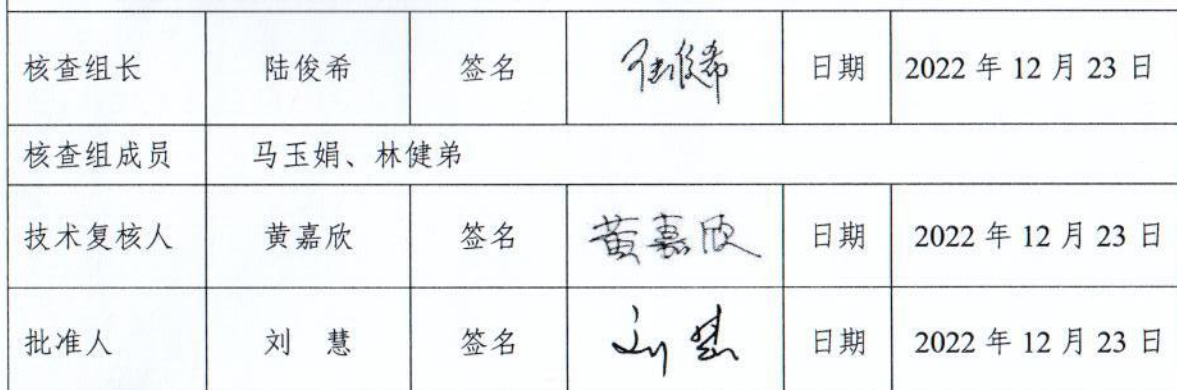 核查组长 陆俊希 签名 陆俊希 日期 2022 年 12 月 23 日
核查组成员 马玉娟、林健弟
技术复核人 黄嘉欣 签名 黄嘉欣 日期 2022 年 12 月 23 日
批准人 刘 慧 签名 刘慧 日期 2022 年 12 月 23 日